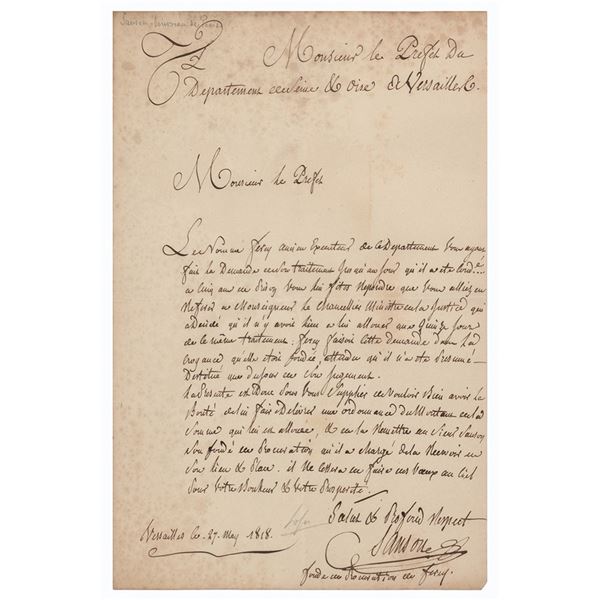 Monsieur le Prefet Du
Departement de Seine & oise a Versailles.
Monsieur le Prefet
Le Nommé ferey ancien Executeur de ce Departement Vous ayant
fait la Demande de son traitement jusqu'au jour qu'il a eté
a cinq ans de Vous lui fites repondre que Vous alliez en
Referer a Monseigneur le Chancellier Ministre de la Justice qui
a decidé qu'il n'y avoit lieu a lui allouer que quinze jour
de le même traitement; ferey faisoit cette demande dans la
croyance qu'elle etoit fondée, attendu qu'il n'a eté presumé
Destitué que du jour de son jugement.
La Presente est Donc pour Vous Supplier de Vouloir Bien avoir la
Bonté de lui faire Delivrer une ordonnance de de la
Somme qui lui est allouée, & de la Remettre au Sieur Sanson
Son fondé de Procuration qu'il a chargé de la Recevoir en
Son lieu & Place. il ne Cessera de faire des Vœux au Ciel
Pour Votre Bonheur & Votre Prosperité.
Salut & Profond Respect
Versailles le 27 May 1818.
Sanson
fondé de Procuration de ferey.